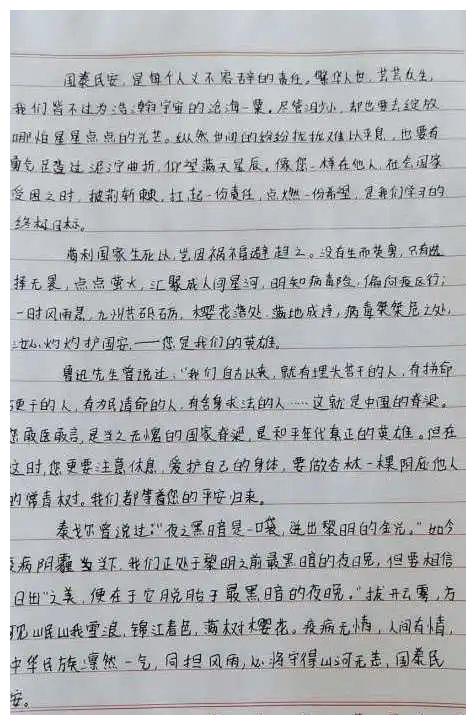 国泰民安,是每个人义不容辞的责任。繁华人世,芸芸众生,
我们皆不过为浩瀚宇宙的沧海一粟。尽管渺小,却也要去绽放
哪怕星星点点的光芒。纵然世间的纷纷扰扰难以平息,也要有
勇气足蹚过泥泞曲折,仰望满天星辰,像您一样在他人,社会国家
受困之时,披荆斩棘,扛起一份责任,点燃一份希望,是我们学习的
终极目标。
苟利国家生死以,岂因祸福避趋之。没有生而英勇,只有选
择无畏,点点萤火,汇聚成人间星河,明知病毒险,偏向疫区行;
一时风雨晨,九州共砥砺,樱花落处,满地成诗,病毒桀桀危之处,
心灼灼护国安,——您是我们的英雄。
鲁迅先生曾说过:“我们自古以来,就有埋头苦干的人,有拼命
硬干的人,有为民请命的人,有舍身求法的人……这就是中国的脊梁。
您敢医敢言,是当之无愧的国家脊梁,是和平年代真正的英雄。但在
这时,您更要注意休息,爱护自己的身体,要做杏林一棵荫庇他人
的常青树。我们都等着您的平安归来。
泰戈尔曾说过:“夜之黑暗是一口袋,迸出黎明的金光。”如今
疫病阴霾当下,我们正处于黎明之前最黑暗的夜晚,但要相信
日出”之美,便在于它脱胎于最黑暗的夜晚。”拨开云雾,方
可见岷山我雪浪,锦江春色,满树樱花。疫病无情,人间有情,
中华民族凛然一气,同担风雨,必将守得山河无恙,国泰民
安。